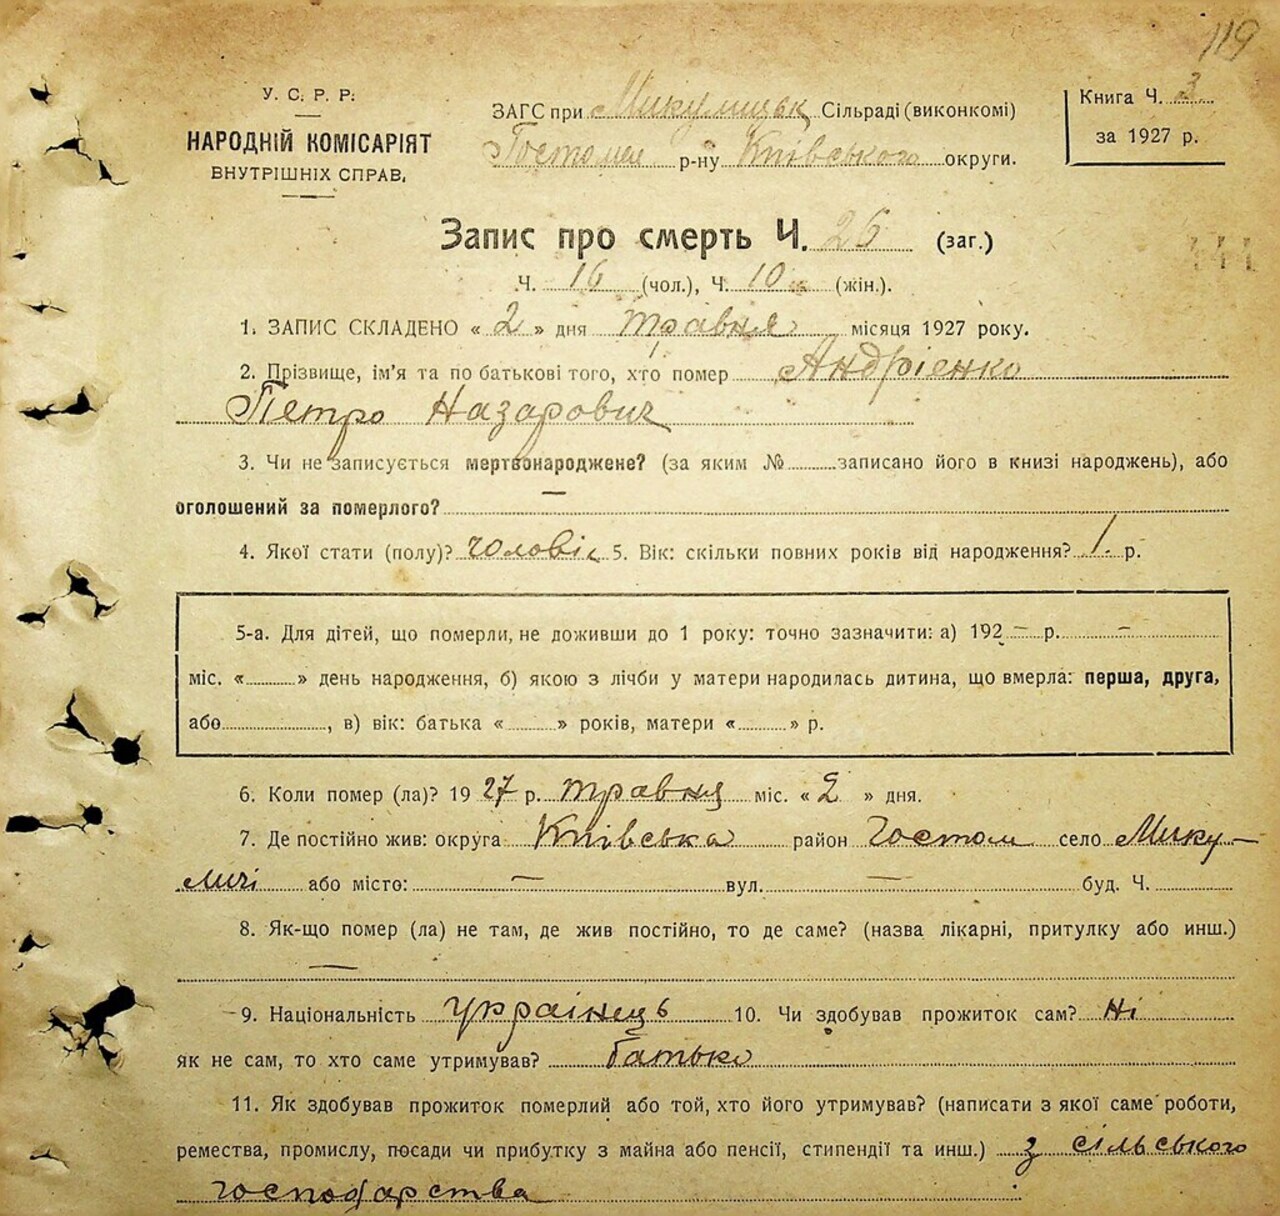 119
У. С. Р. Р.
НАРОДНІЙ КОМІСАРІЯТ
ВНУТРІШНІХ СПРАВ.
ЗАГС при Микулицьк Сільраді (виконкомі)
Гостомел р-ну Київського округи.
Книга Ч. 3
за 1927 р.
Запис про смерть Ч. 26 (заг.)
Ч. 16 (чол.), Ч. 10 (жін.).
1. ЗАПИС СКЛАДЕНО « 2 » дня травня місяця 1927 року.
2. Прізвище, ім'я та по батькові того, хто помер Андрієнко
Петро Назарович
3. Чи не записується мертвонароджене? (за яким № записано його в книзі народжень), або
оголошений за померлого? —
4. Якої стати (полу)? чоловіч 5. Вік: скільки повних років від народження? 1. р.
5-а. Для дітей, що померли, не доживши до 1 року: точно зазначити: а) 192 — р. —
міс. « » день народження, б) якою з лічби у матери народилась дитина, що вмерла: перша, друга,
або , в) вік: батька « » років, матери « » р.
6. Коли помер (ла)? 1927 р. травня міс. « 2 » дня.
7. Де постійно жив: округа Київська район Гостом село Мику-
личі або місто: — вул. — буд. Ч.
8. Як-що помер (ла) не там, де жив постійно, то де саме? (назва лікарні, притулку або инш.)
—
9. Національність українець 10. Чи здобував прожиток сам? Ні
як не сам, то хто саме утримував? батько
11. Як здобував прожиток померлий або той, хто його утримував? (написати з якої саме роботи,
ремества, промислу, посади чи прибутку з майна або пенсії, стипендії та инш.) з сільського
господарства